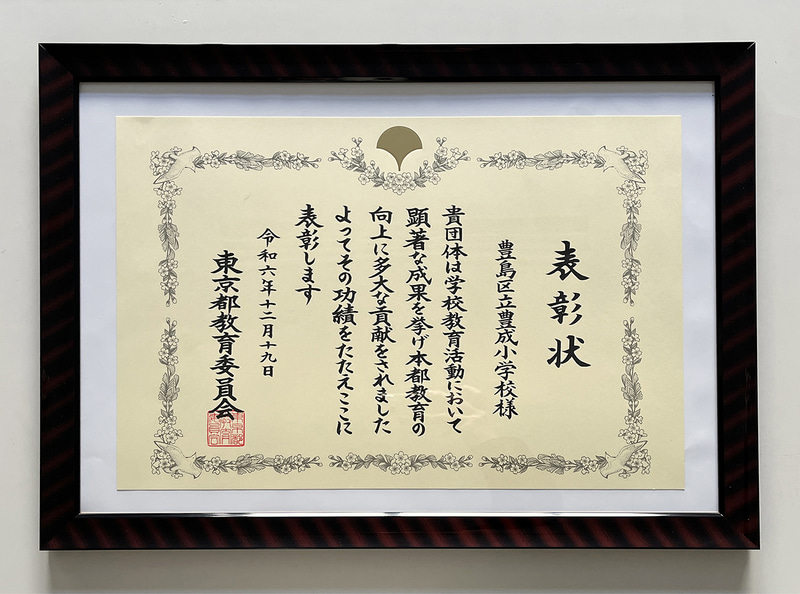 表彰状
豊島区立豊成小学校様
貴団体は学校教育活動において
顕著な成果を挙げ本都教育の
向上に多大な貢献をされました
よってその功績をたたえここに
表彰します
令和六年十二月十九日
東京都教育委員会